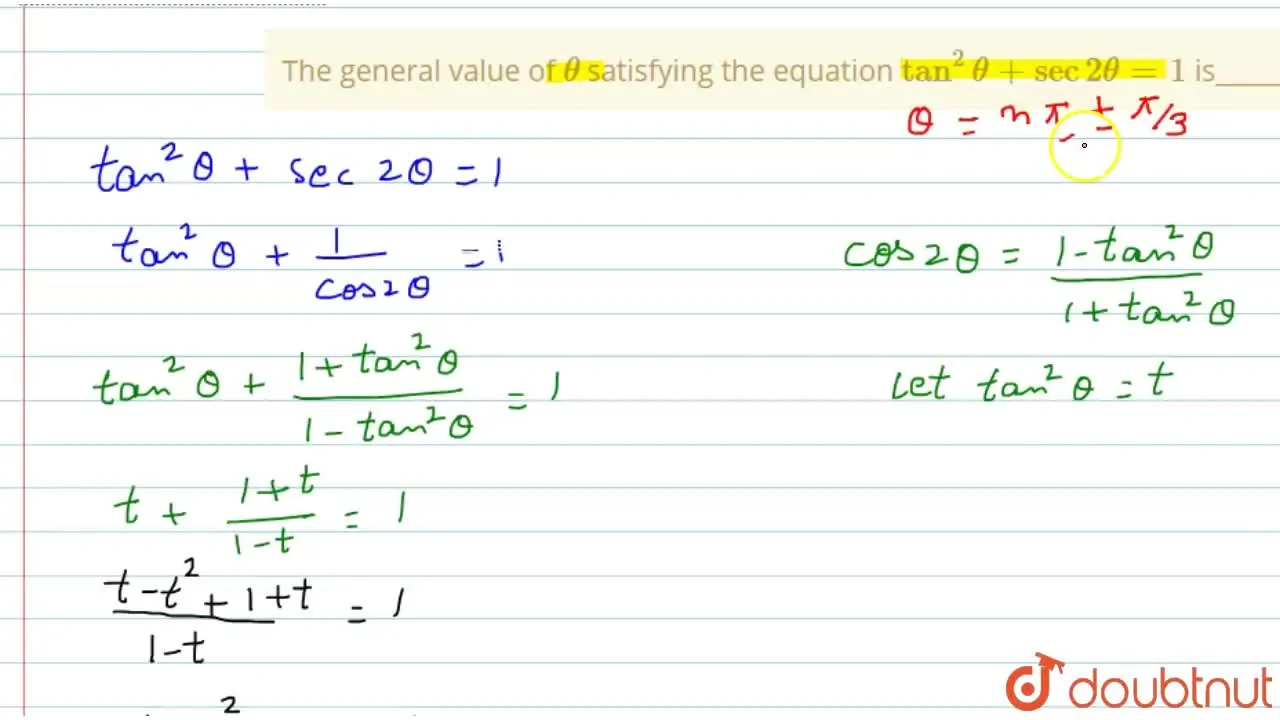 The general value of θ satisfying the equation tan² θ + sec 2θ = 1 is____
θ = nπ ± π/3
tan² θ + sec 2θ = 1
tan² θ + 1/cos2θ = 1
cos2θ = (1 - tan² θ)/(1 + tan² θ)
tan² θ + (1 + tan² θ)/(1 - tan² θ) = 1
Let tan² θ = t
t + (1+t)/(1-t) = 1
(t - t² + 1 + t)/(1-t) = 1
2
doubtnut